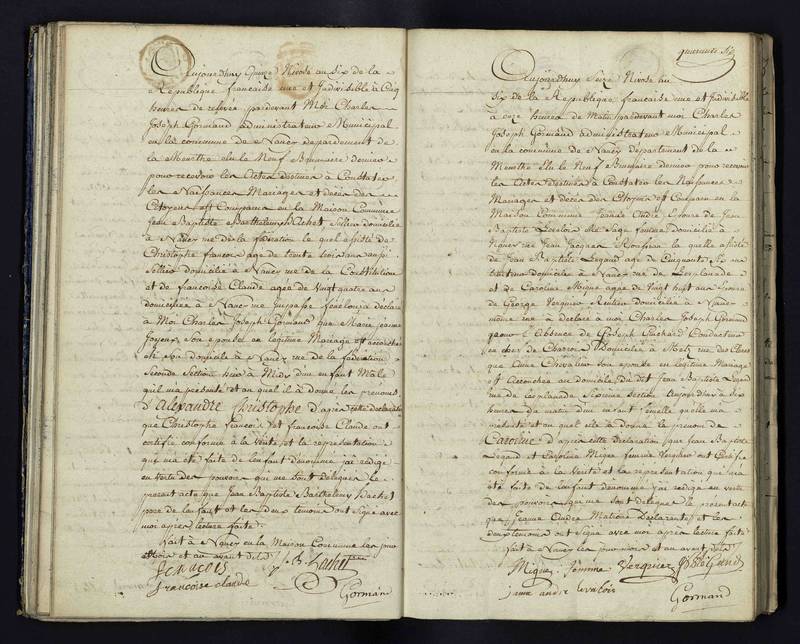 Aujourdhuy Quinze Nivose an Six de la
République francaise une et Indivisible à Cinq
heures de relevée pardevant Moi Charles
Joseph Gormand administrateur Municipal
en la commune de Nancy departement de
la Meurthe élu le Neuf Brumaire dernier
pour recevoir les Actes destinés à Constater
les Naissances Mariages et décès des
Citoyens est Comparu en la Maison Commune
Jean Baptiste Barthelemy Bachet, Sellier domicilié
à Nancy rue de la fédération le quel assisté de
Christophe francois agé de trente trois ans aussi
Sellier domicilié à Nancy rue de la Constitution
et de francoise Claude agée de Vingt quatre ans
domiciliée à Nancy rue a déclaré
à Moi Charles Joseph Gormand que Marie jeanne
son épouse en legitime Mariage est accouchée
en Son domicile à Nancy rue de la fédération
Seconde Section hier à Midy d'un enfant Mâle
qu'il m'a présenté et au quel il a donné les prénoms
d'alexandre Christophe d'après cette declaration
que Christophe francois et francoise Claude ont
certifié conforme à la Vérité et la représentation
qui m'a été faite de l'enfant dénommé j'ai rédigé
en vertu des pouvoirs qui me sont délégués le
présent acte que Jean Baptiste Barthelemy Bachet
pere de l'enfant et les deux temoins ont Signé avec
moi après lecture faite.
fait à Nancy en la Maison Commune les jour
mois et an avant dits
francois J. B. Bachet
francoise claude Gormand
quarante Six
Aujourdhuy Seize Nivose an
Six de la République francaise une et Indivisible
à onze heures du Matin pardevant moi Charles
Joseph Gormand administrateur Municipal
en la commune de Nancy département de la
Meurthe élu le Neuf Brumaire dernier pour recevoir
les Actes destinés à Constater les Naissances
Mariages et décès des Citoyens est Comparu en la
Maison Commune Jeanne Oudré Epouse de Jean
Baptiste Sage femme domiciliée à
Nancy rue Jean Jacques Rousseau la quelle assistée
de Jean Baptiste Legand agé de Cinquante Six ans
domicilié à Nancy rue de l'esplanade
et de Caroline Migue agée de Vingt huit ans femme
de George Verquier domiciliée à Nancy
même rue a déclaré à moi Charles Joseph Gormand
qu'en l'absence de Joseph Conducteur
en chef de Charrois Domicilié à Metz rue
que Anne Chevalier son épouse en legitime Mariage
est accouchée au domicile du dit Jean Baptiste Legand
rue de l'esplanade Sixieme Section Aujourdhui à Six
heures du matin d'un enfant femelle qu'elle m'a
présenté et au quel elle a donné le prenom de
Caroline d'après cette déclaration que Jean Baptiste
Legand et Caroline Migue femme Verquier ont Certifié
conforme à la Vérité et la représentation qui m'a
été faite de l'enfant dénommé j'ai rédigé en vertu
des pouvoirs qui me sont délégués le présent acte
que Jeanne Oudré Matrone Déclarante et les
deux temoins ont signé avec moi après lecture faite
fait à Nancy les jour mois et an avant dits
Migue femme Verquier
Gormand